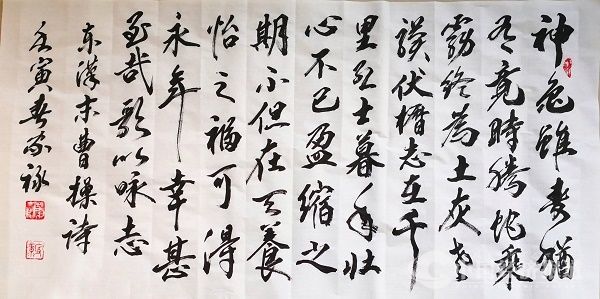 神龟雖寿猶
有竟時腾蛇乘
霧终為土灰老
骥伏槽志在千
里烈士暮年壮
心不已盈缩之
期不但在天養
怡之福可得
永年幸甚
至哉歌以咏志
东漢末曹操诗
壬寅春